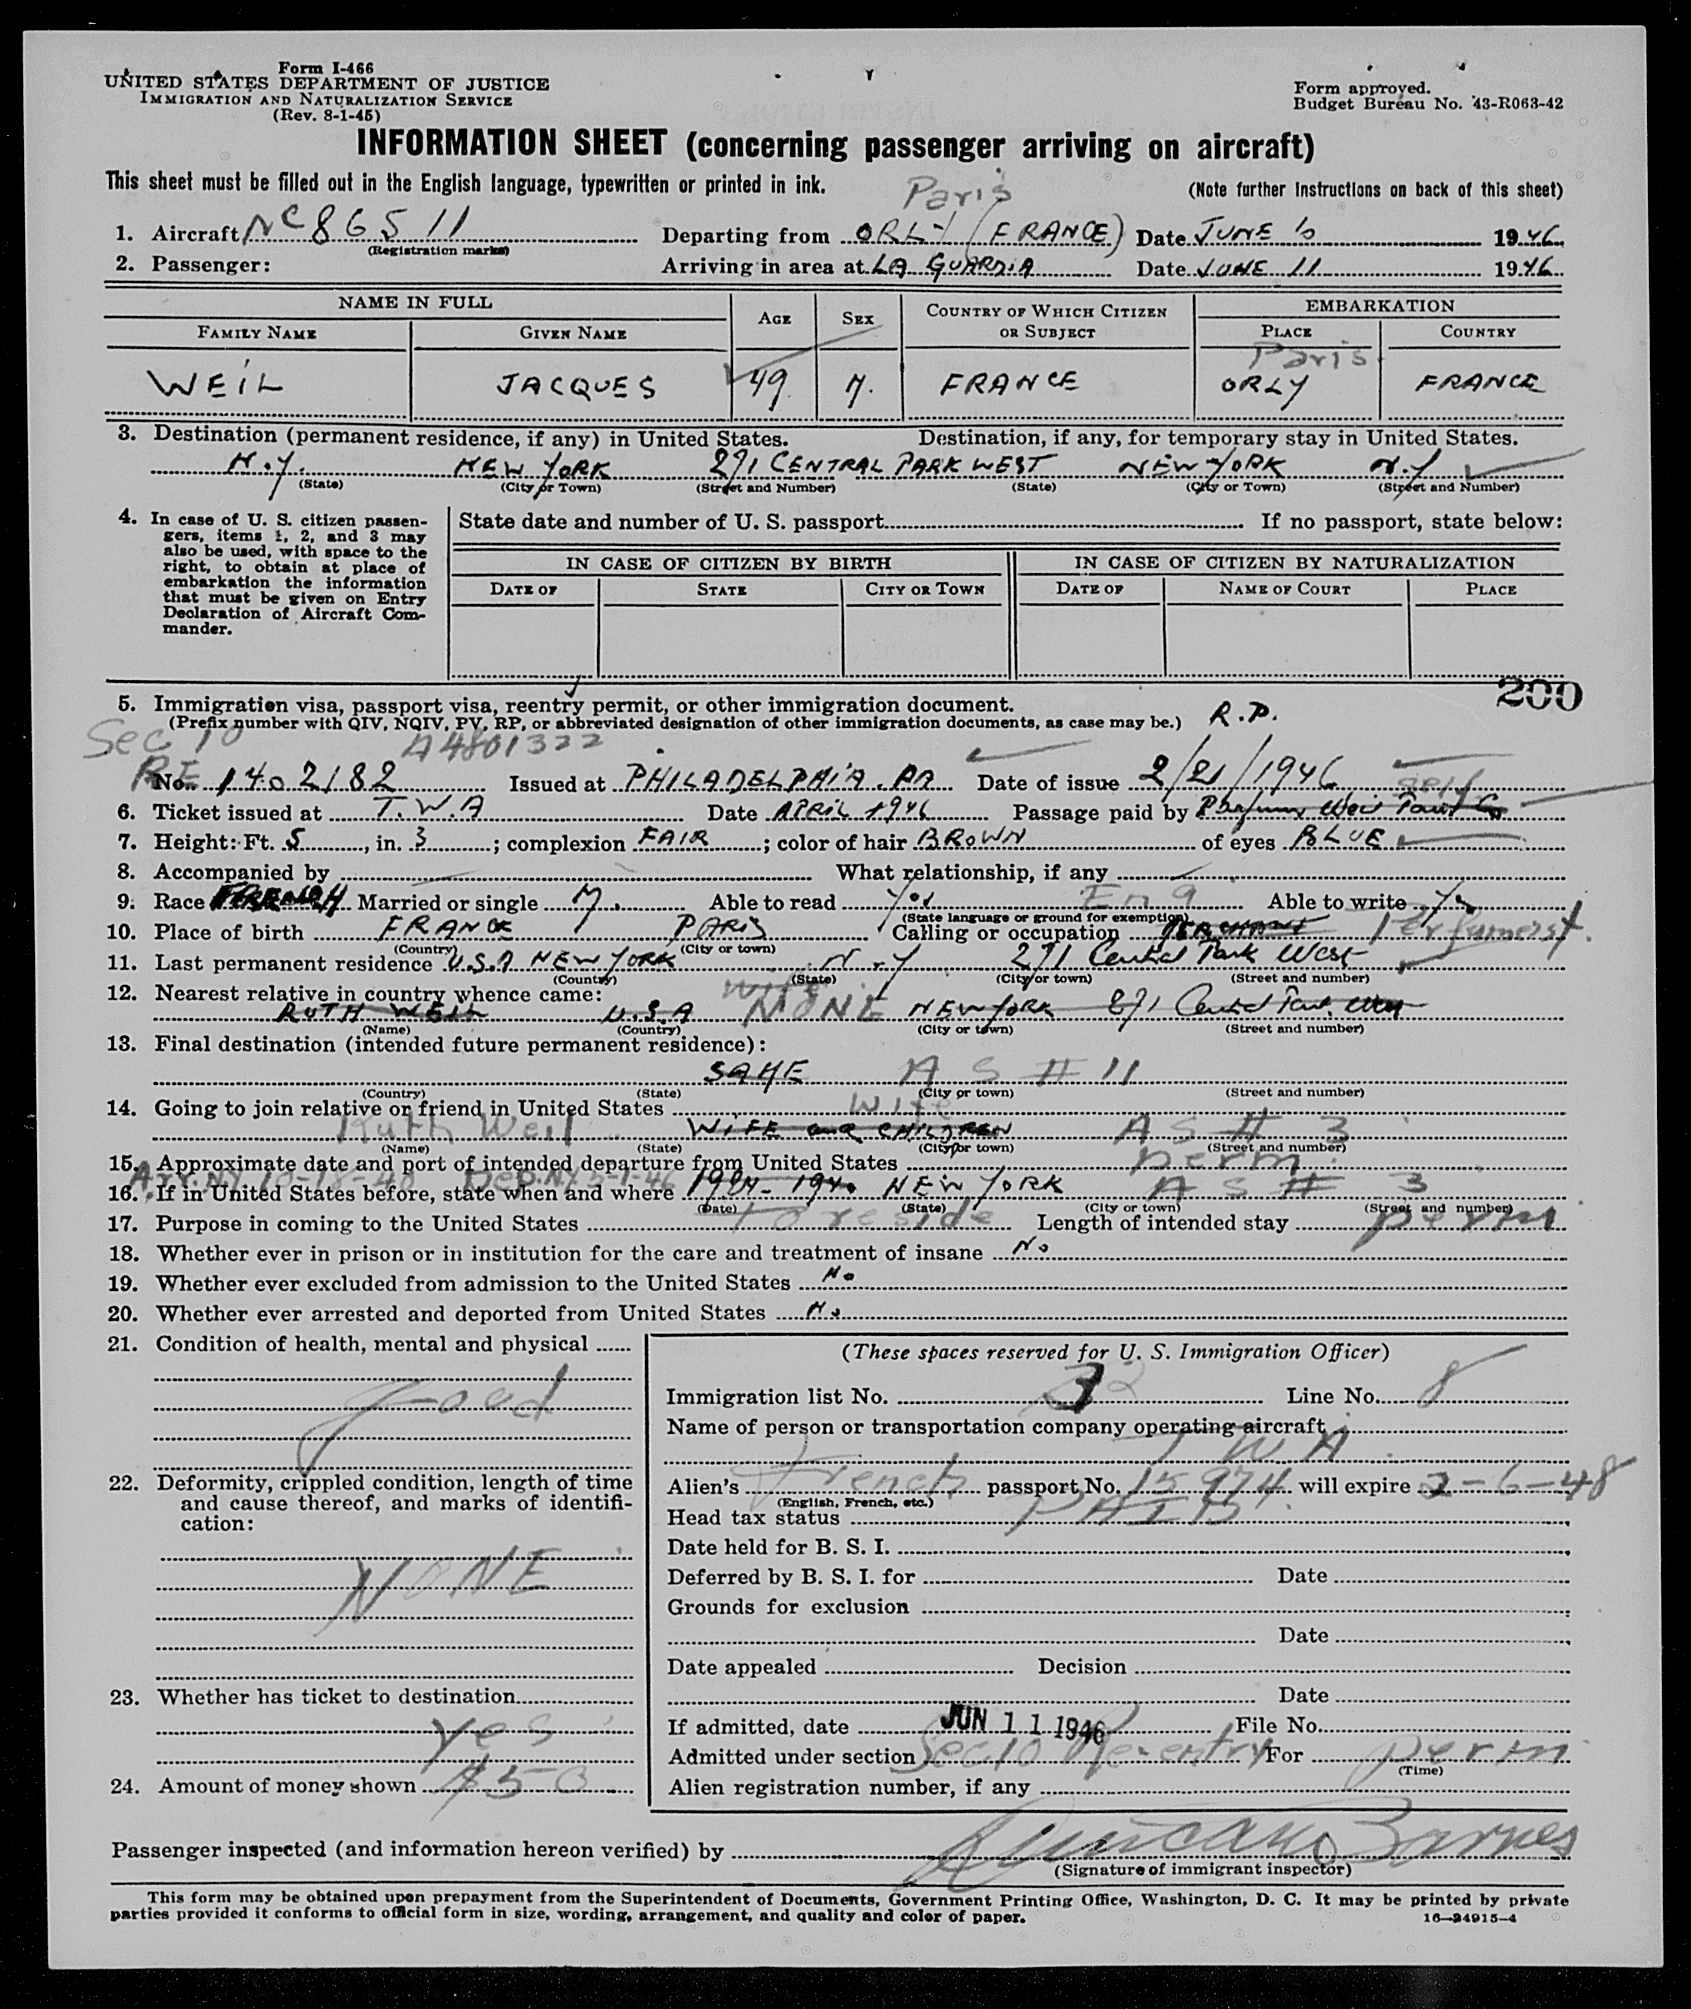 Form I-466
UNITED STATES DEPARTMENT OF JUSTICE
IMMIGRATION AND NATURALIZATION SERVICE
(Rev. 8-1-45)
Form approved.
Budget Bureau No. 43-R063-42
INFORMATION SHEET (concerning passenger arriving on aircraft)
This sheet must be filled out in the English language, typewritten or printed in ink.
(Note further instructions on back of this sheet)
Paris
1. Aircraft NC 86511 Departing from ORLY (FRANCE) Date JUNE 10 1946
(Registration marks)
2. Passenger: Arriving in area at LA GUARDIA Date JUNE 11 1946
NAME IN FULL AGE SEX COUNTRY OF WHICH CITIZEN OR SUBJECT EMBARKATION
FAMILY NAME GIVEN NAME PLACE COUNTRY
Paris
WEIL JACQUES 49 M. FRANCE ORLY FRANCE
3. Destination (permanent residence, if any) in United States. Destination, if any, for temporary stay in United States.
N.Y. NEW YORK 271 CENTRAL PARK WEST NEW YORK N.Y
(State) (City or Town) (Street and Number) (State) (City or Town) (Street and Number)
4. In case of U. S. citizen passengers, items 1, 2, and 3 may also be used, with space to the right, to obtain at place of embarkation the information that must be given on Entry Declaration of Aircraft Commander.
State date and number of U. S. passport If no passport, state below:
IN CASE OF CITIZEN BY BIRTH IN CASE OF CITIZEN BY NATURALIZATION
DATE OF STATE CITY OR TOWN DATE OF NAME OF COURT PLACE
200
5. Immigration visa, passport visa, reentry permit, or other immigration document.
(Prefix number with QIV, NQIV, PV, RP, or abbreviated designation of other immigration documents, as case may be.) R.P.
Sec 10 A4801322
RE No. 1402182 Issued at PHILADELPHIA. PA Date of issue 2/21/1946
self
6. Ticket issued at T.W.A Date APRIL 1946 Passage paid by
7. Height: Ft. 5, in. 3; complexion FAIR; color of hair BROWN of eyes BLUE
8. Accompanied by What relationship, if any
9. Race FRENCH Married or single M. Able to read Yes Eng Able to write Yes
(State language or ground for exemption)
10. Place of birth FRANCE PARIS Calling or occupation Perfumerst.
(Country) (City or town)
11. Last permanent residence U.S.A NEW YORK N.Y 271 Central Park West
(Country) (State) (City or town) (Street and number)
12. Nearest relative in country whence came: wife
RUTH WEIL U.S.A NONE NEW YORK 271 Central Park West
(Name) (Country) (City or town) (Street and number)
13. Final destination (intended future permanent residence):
SAME AS #11
(Country) (State) (City or town) (Street and number)
14. Going to join relative or friend in United States Wife
Ruth Weil WIFE and CHILDREN AS # 3
(Name) (State) (City or town) (Street and number)
15. Approximate date and port of intended departure from United States perm.
Arr. N.Y. 10-18-40 Dep. N.Y. 5-1-46
16. If in United States before, state when and where 1940 NEW YORK AS # 3
(Date) (State) (City or town) (Street and number)
17. Purpose in coming to the United States to reside Length of intended stay perm
18. Whether ever in prison or in institution for the care and treatment of insane No
19. Whether ever excluded from admission to the United States No
20. Whether ever arrested and deported from United States No
21. Condition of health, mental and physical
good
22. Deformity, crippled condition, length of time and cause thereof, and marks of identification:
NONE
23. Whether has ticket to destination
yes
24. Amount of money shown $50
(These spaces reserved for U. S. Immigration Officer)
Immigration list No. 3 Line No. 8
Name of person or transportation company operating aircraft
TWA
Alien's French passport No. 15974 will expire 2-6-48
(English, French, etc.)
Head tax status PAID
Date held for B. S. I.
Deferred by B. S. I. for Date
Grounds for exclusion
Date
Date appealed Decision
Date
If admitted, date JUN 11 1946 File No.
Admitted under section Sec 10 Re-entry For perm
(Time)
Alien registration number, if any
Passenger inspected (and information hereon verified) by Duncan Barnes
(Signature of immigrant inspector)
This form may be obtained upon prepayment from the Superintendent of Documents, Government Printing Office, Washington, D. C. It may be printed by private
parties provided it conforms to official form in size, wording, arrangement, and quality and color of paper.
16—24915-4